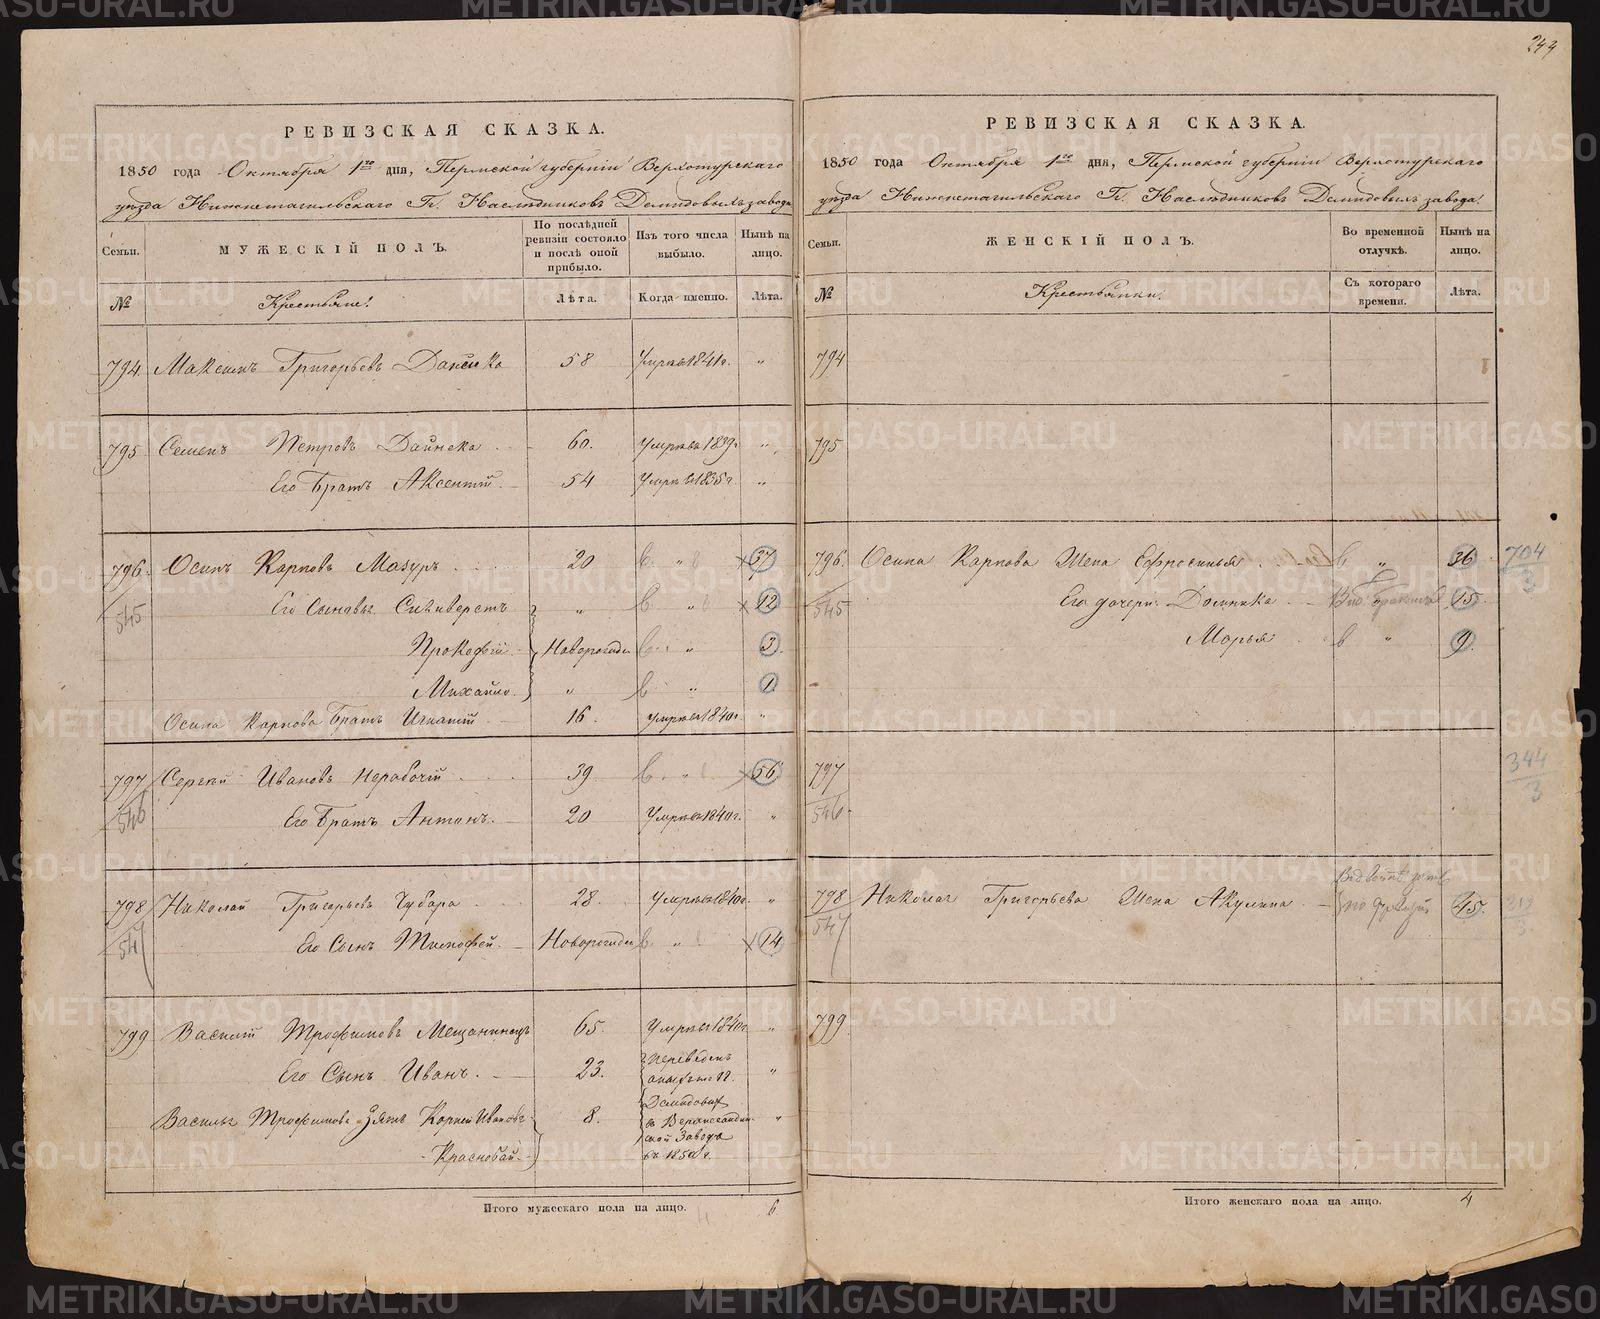 244
РЕВИЗСКАЯ СКАЗКА.
1850 года Октября 1го дня, Пермской губернiи Верхотурскаго
уѣзда Нижнетагильскаго Гг. Наслѣдниковъ Демидовыхъ завода
Семьи.
МУЖЕСКIЙ ПОЛЪ.
По послѣдней ревизiи состояло и послѣ оной прибыло.
Изъ того числа выбыло.
Нынѣ на лицо.
№
Крестьяне:
Лѣта.
Когда именно.
Лѣта.
794 Максимъ Григорьевъ Данѣика 58 Умре въ 1841 г. "
795 Семенъ Петровъ Дайнека 60. Умре въ 1839 г. "
Его Братъ Аксентiй 54 Умре въ 1835 г. "
796. Осипъ Карповъ Мазуръ 20 " 37
545 Его Сыновья Сильверстъ " " 12
Прокофiй Новорожден " 3
Михайло " " 1
Осипа Карпова Братъ Игнатiй 16. умре въ 1840 г. "
797 Сергѣй Ивановъ Нерабочiй 39 " 56
546 Его Братъ Антонъ. 20 Умре въ 1840 г. "
798 Николай Григорьевъ Чубара 28. Умре въ 1840 г. "
547 Его Сынъ Тимофей. Новорожден " 14
799 Василiй Трофимовъ Мещанинецъ 65. Умре въ 1840 г. "
Его Сынъ Иванъ. 23. Переведенъ "
Василья Трофимова Зять Корней Ивановъ 8. Демидовых "
Краснобай Завода
въ 1850 г.
Итого мужескаго пола на лицо. 6
4
РЕВИЗСКАЯ СКАЗКА.
1850 года Октября 1го дня, Пермской губернiи Верхотурскаго
уѣзда Нижнетагильскаго Гг. Наслѣдниковъ Демидовыхъ завода.
Семьи.
ЖЕНСКIЙ ПОЛЪ.
Во временной отлучкѣ.
Нынѣ на лицо.
№
Крестьянки.
Съ котораго времени.
Лѣта.
794
795
796. Осипа Карпова Жена Ефросинья " 36 704
3
545 Его дочери: Доминика 15.
Марья " 9.
797
546
344
3
798 Николая Григорьева Жена Акулина 45. 219
3
547
799
Итого женскаго пола на лицо. 4
METRIKI.GASO-URAL.RU